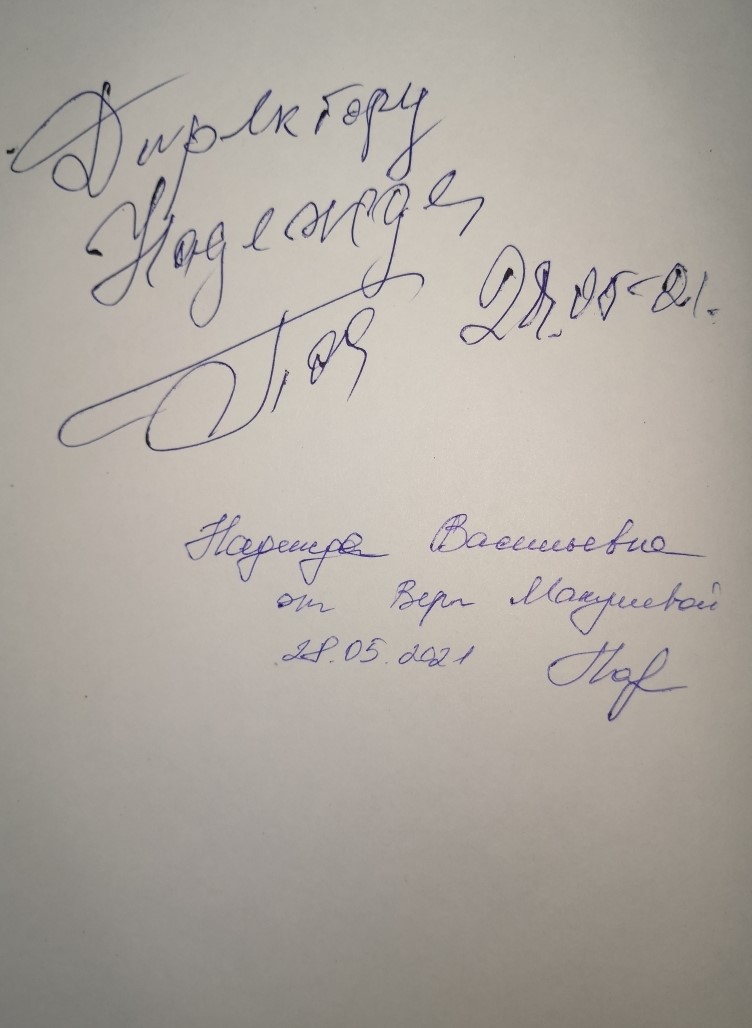 Директору
Надежде
28.05-21.
Надежда Васильевна
от Веры Макушевой
28.05.2021